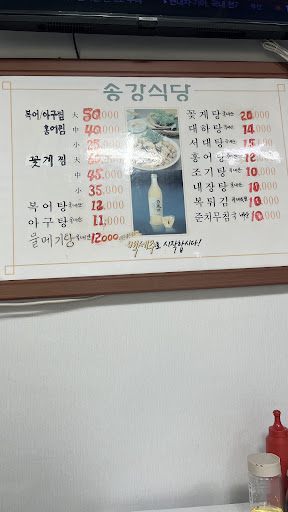 송강식당
복어/아구찜 大 50,000
홍어찜 中 40,000
小 25,000
꽃게찜 大
中 45,000
小 35,000
복어탕 국내산 12,000
아구탕 국내산 11,000
물메기탕 국내산 12000
꽃게탕 국내산 20,000
대하탕 14,000
서대탕 15,000
홍어탕 12,000
조기탕 10,000
내장탕 10,000
복튀김 10,000
준치무침 10,000
백세주로 시작합시다!